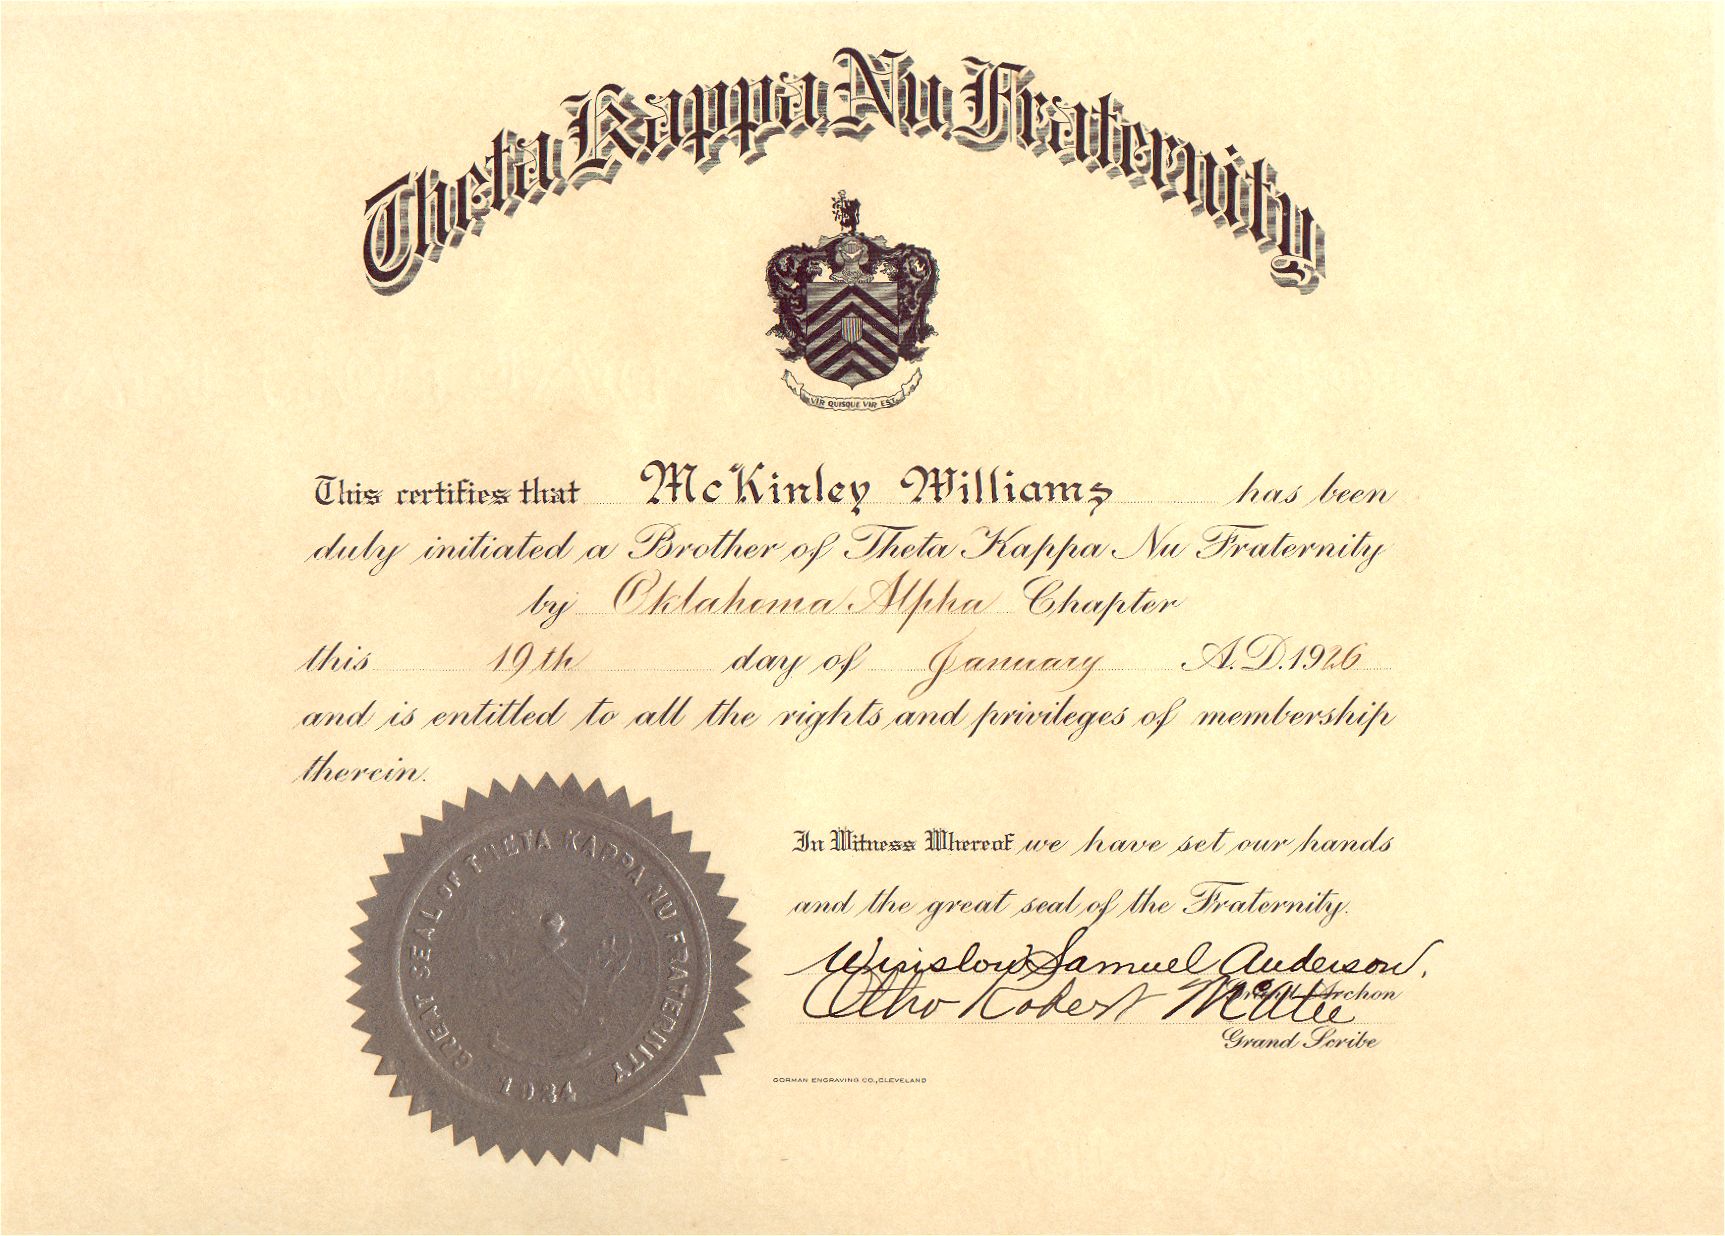 Theta Kappa Nu Fraternity
VIR QUISQUE VIR EST
This certifies that McKinley Williams has been
duly initiated a Brother of Theta Kappa Nu Fraternity
by Oklahoma Alpha Chapter
this 19th day of January A.D. 1926
and is entitled to all the rights and privileges of membership
therein.
GREAT SEAL OF THETA KAPPA NU FRATERNITY
1924
In Witness Whereof we have set our hands
and the great seal of the Fraternity.
Winslow Samuel Anderson.
Grand Archon
Otho Robert McAtee
Grand Scribe
GORMAN ENGRAVING CO., CLEVELAND